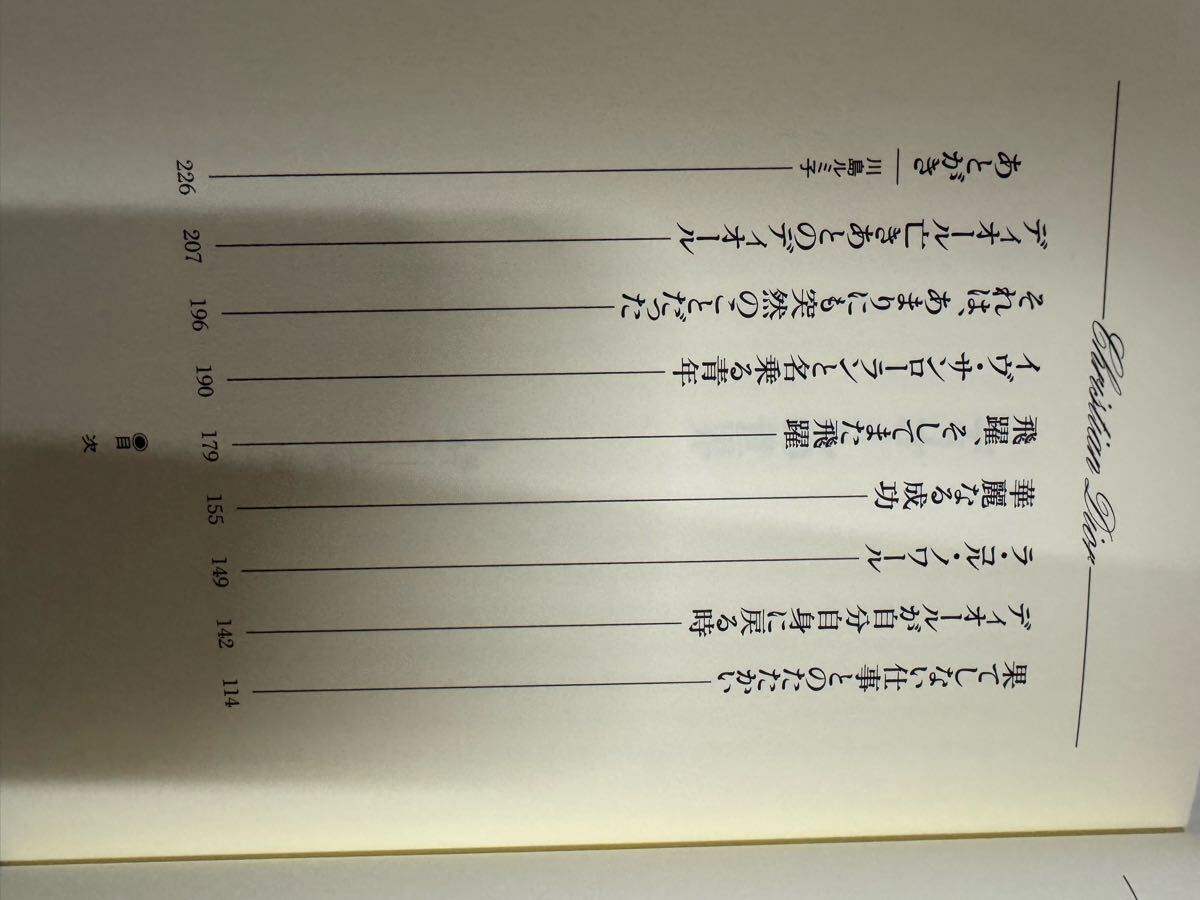 Christian Dior
果てしない仕事とのたたかい 114
ディオールが自分自身に戻る時 142
ラ・コル・ノワール 149
華麗なる成功 155
飛躍、そしてまた飛躍 179
イヴ・サンローランと名乗る青年 190
それは、あまりにも突然のことだった 196
ディオール亡きあとのディオール 207
あとがき 川島ルミ子 226
◉目次